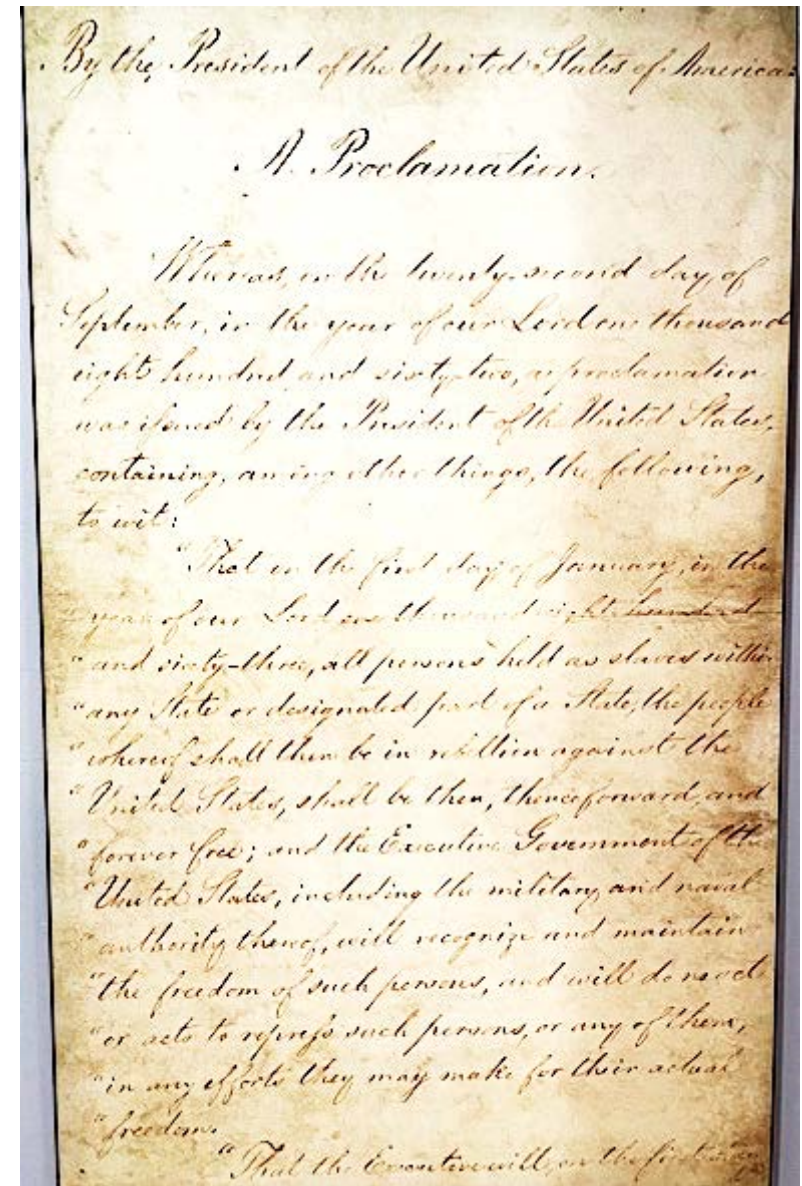 By the President of the United States of America:
A Proclamation.
Whereas, on the twenty-second day of
September, in the year of our Lord one thousand
eight hundred and sixty-two, a proclamation
was issued by the President of the United States,
containing, among other things, the following,
to wit:
"That on the first day of January, in the
year of our Lord one thousand eight hundred
"and sixty-three, all persons held as slaves within
"any State or designated part of a State, the people
"whereof shall then be in rebellion against the
"United States, shall be then, thenceforward, and
"forever free; and the Executive Government of the
"United States, including the military and naval
"authority thereof, will recognize and maintain
"the freedom of such persons, and will do no act
"or acts to repress such persons, or any of them,
"in any efforts they may make for their actual
"freedom.
"That the Executive will, on the first day